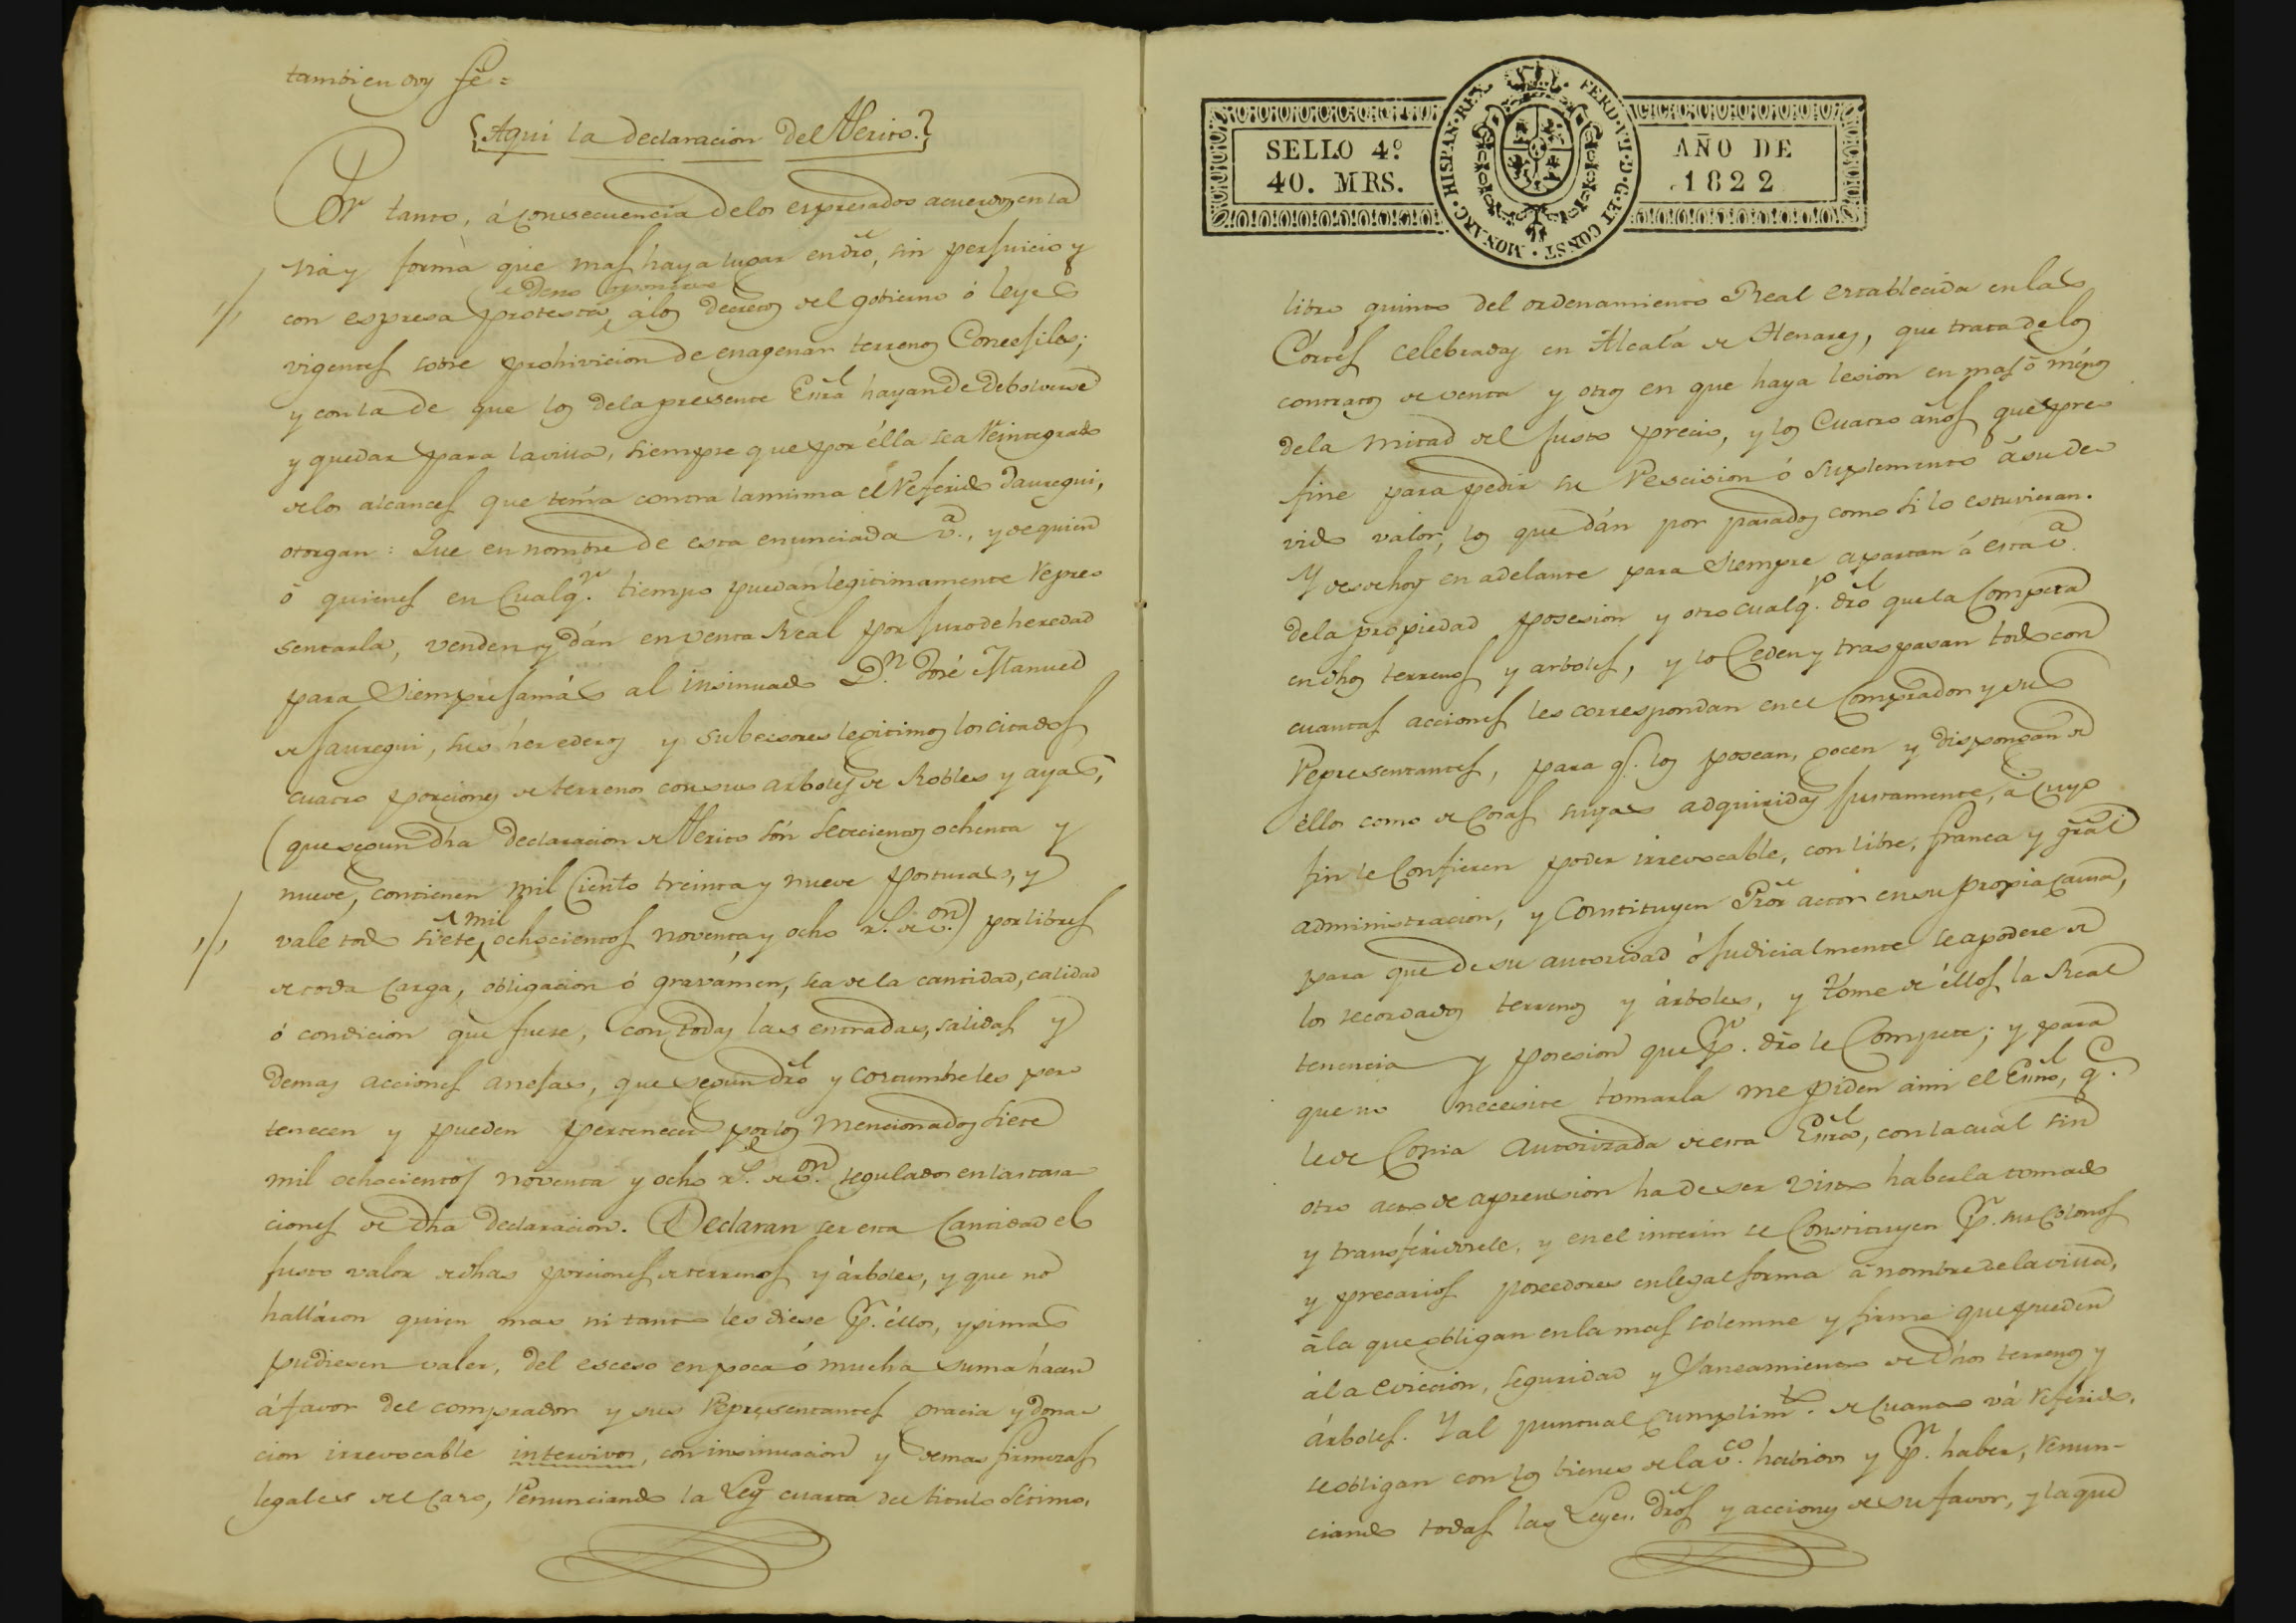 tambien doy fè=
{Aqui la declaracion del Perito.}
Por tanto, á consecuencia delos espresados acuerdos, en la
via y forma que mas haya lugar en dro, sin perjuicio y
é Deno oponerse
con espresa protesta, álos decretos del gobierno ó leyes
vigentes sobre prohivicion de enagenar terrenos Concejiles;
y con la de que los dela presente Esrâ hayan de debolverse
y quedar para la villa, siempre que por élla sea Reintegrado
de los alcances que tenia contra la misma el Referido Jauregui,
otorgan: Que en nombre de esta enunciada v.ª, y de quien
ó quienes en Cualq.r tiempo puedan legitimamente Repre
sentarla, venden y dán en venta Real por juro de heredad
para Siempre jamás al insinuado D.n José Manuel
de Jauregui, sus herederos y subcesores legitimos los citados
cuatro porciones de terreno con sus arboles de Robles y ayas,
(que segun dha declaracion de Perito són setecientos ochenta y
nueve, contienen mil Ciento treinta y nueve posturas, y
mil
vale todo siete ochocientos noventa y ocho r.s de v.on) por libres
de toda carga, obligacion ó gravámen, sea de la cantidad, calidad
ó condicion que fuere, con todas las entradas, salidas y
demas acciones anejas, que segun dro y costumbre les per
tenecen y pueden pertenecer por los mencionados siete
mil ochocientos noventa y ocho r.s de v.on regulados en las tasa
ciones de dha declaracion. Declaran ser esta Cantidad el
justo valor de dhas porciones de terrenos y árboles, y que no
halláron quien mas ni tanto les diese p.r éllos, y si mas
pudiesen valer, del esceso en poca ó mucha suma hacen
á favor del comprador y sus Representantes gracia y dona
cion irrevocable intervivos, con insinuacion y demas firmezas
legales del caso, Renunciando la Ley cuarta del titulo sétimo,
SELLO 4º
40. MRS.
HISPAN·REX. FERD·VII·D·G·ET CONST·MONARC·
AÑO DE
1822
libro quinto del ordenamiento Real establecida en las
Córtes celebradas en Alcalá de Henares, que trata de los
contratos de venta y otros en que haya lesion en mas ó ménos
dela mitad del justo precio, y los Cuatro años que pre
fine para pedir su Rescision ó suplemento á su de
vido valor, los que dán por pasados como si lo estuvieran.
Y desde hoy en adelante para siempre apartan á esta v.ª
dela propiedad posesion y otro cualq.r dro que la Competa
en dhos terrenos y arboles, y lo Ceden y traspasan todo con
cuantas acciones les correspondan en el Comprador y sus
Representantes, para q.e los posean, gocen y dispongan de
éllos como de Cosas suyas adquiridas justamente, á Cuyo
fin le Confieren poder irrevocable, con libre, franca y gral
administracion, y Constituyen Pror actor en su propia causa,
para que de su autoridad ó judicialmente se apodere de
los recordados terrenos y árboles, y tóme de éllos la Real
tenencia y posesion que p.r dro le Compete; y para
que no necesite tomarla me piden á mi el Esno, q.e
le de Copia autorizada de esta Esra, con la cual sin
otro acto de aprension ha de ser visto haberla tomado
y transferidosele, y en el interin se Constituyen p.r sus Colonos
y precarios poseedores en legal forma á nombre de la villa,
á la que obligan en la mas solemne y firme que pueden
á la eviccion, seguridad y Saneamiento de dhos terrenos y
árboles. Y al puntual Cumplim.to de Cuanto vá Referido,
se obligan con los bienes de la v.ª habidos y p.r haber, Renun-
ciando todas las Leyes, dros y acciones de su favor, y la que